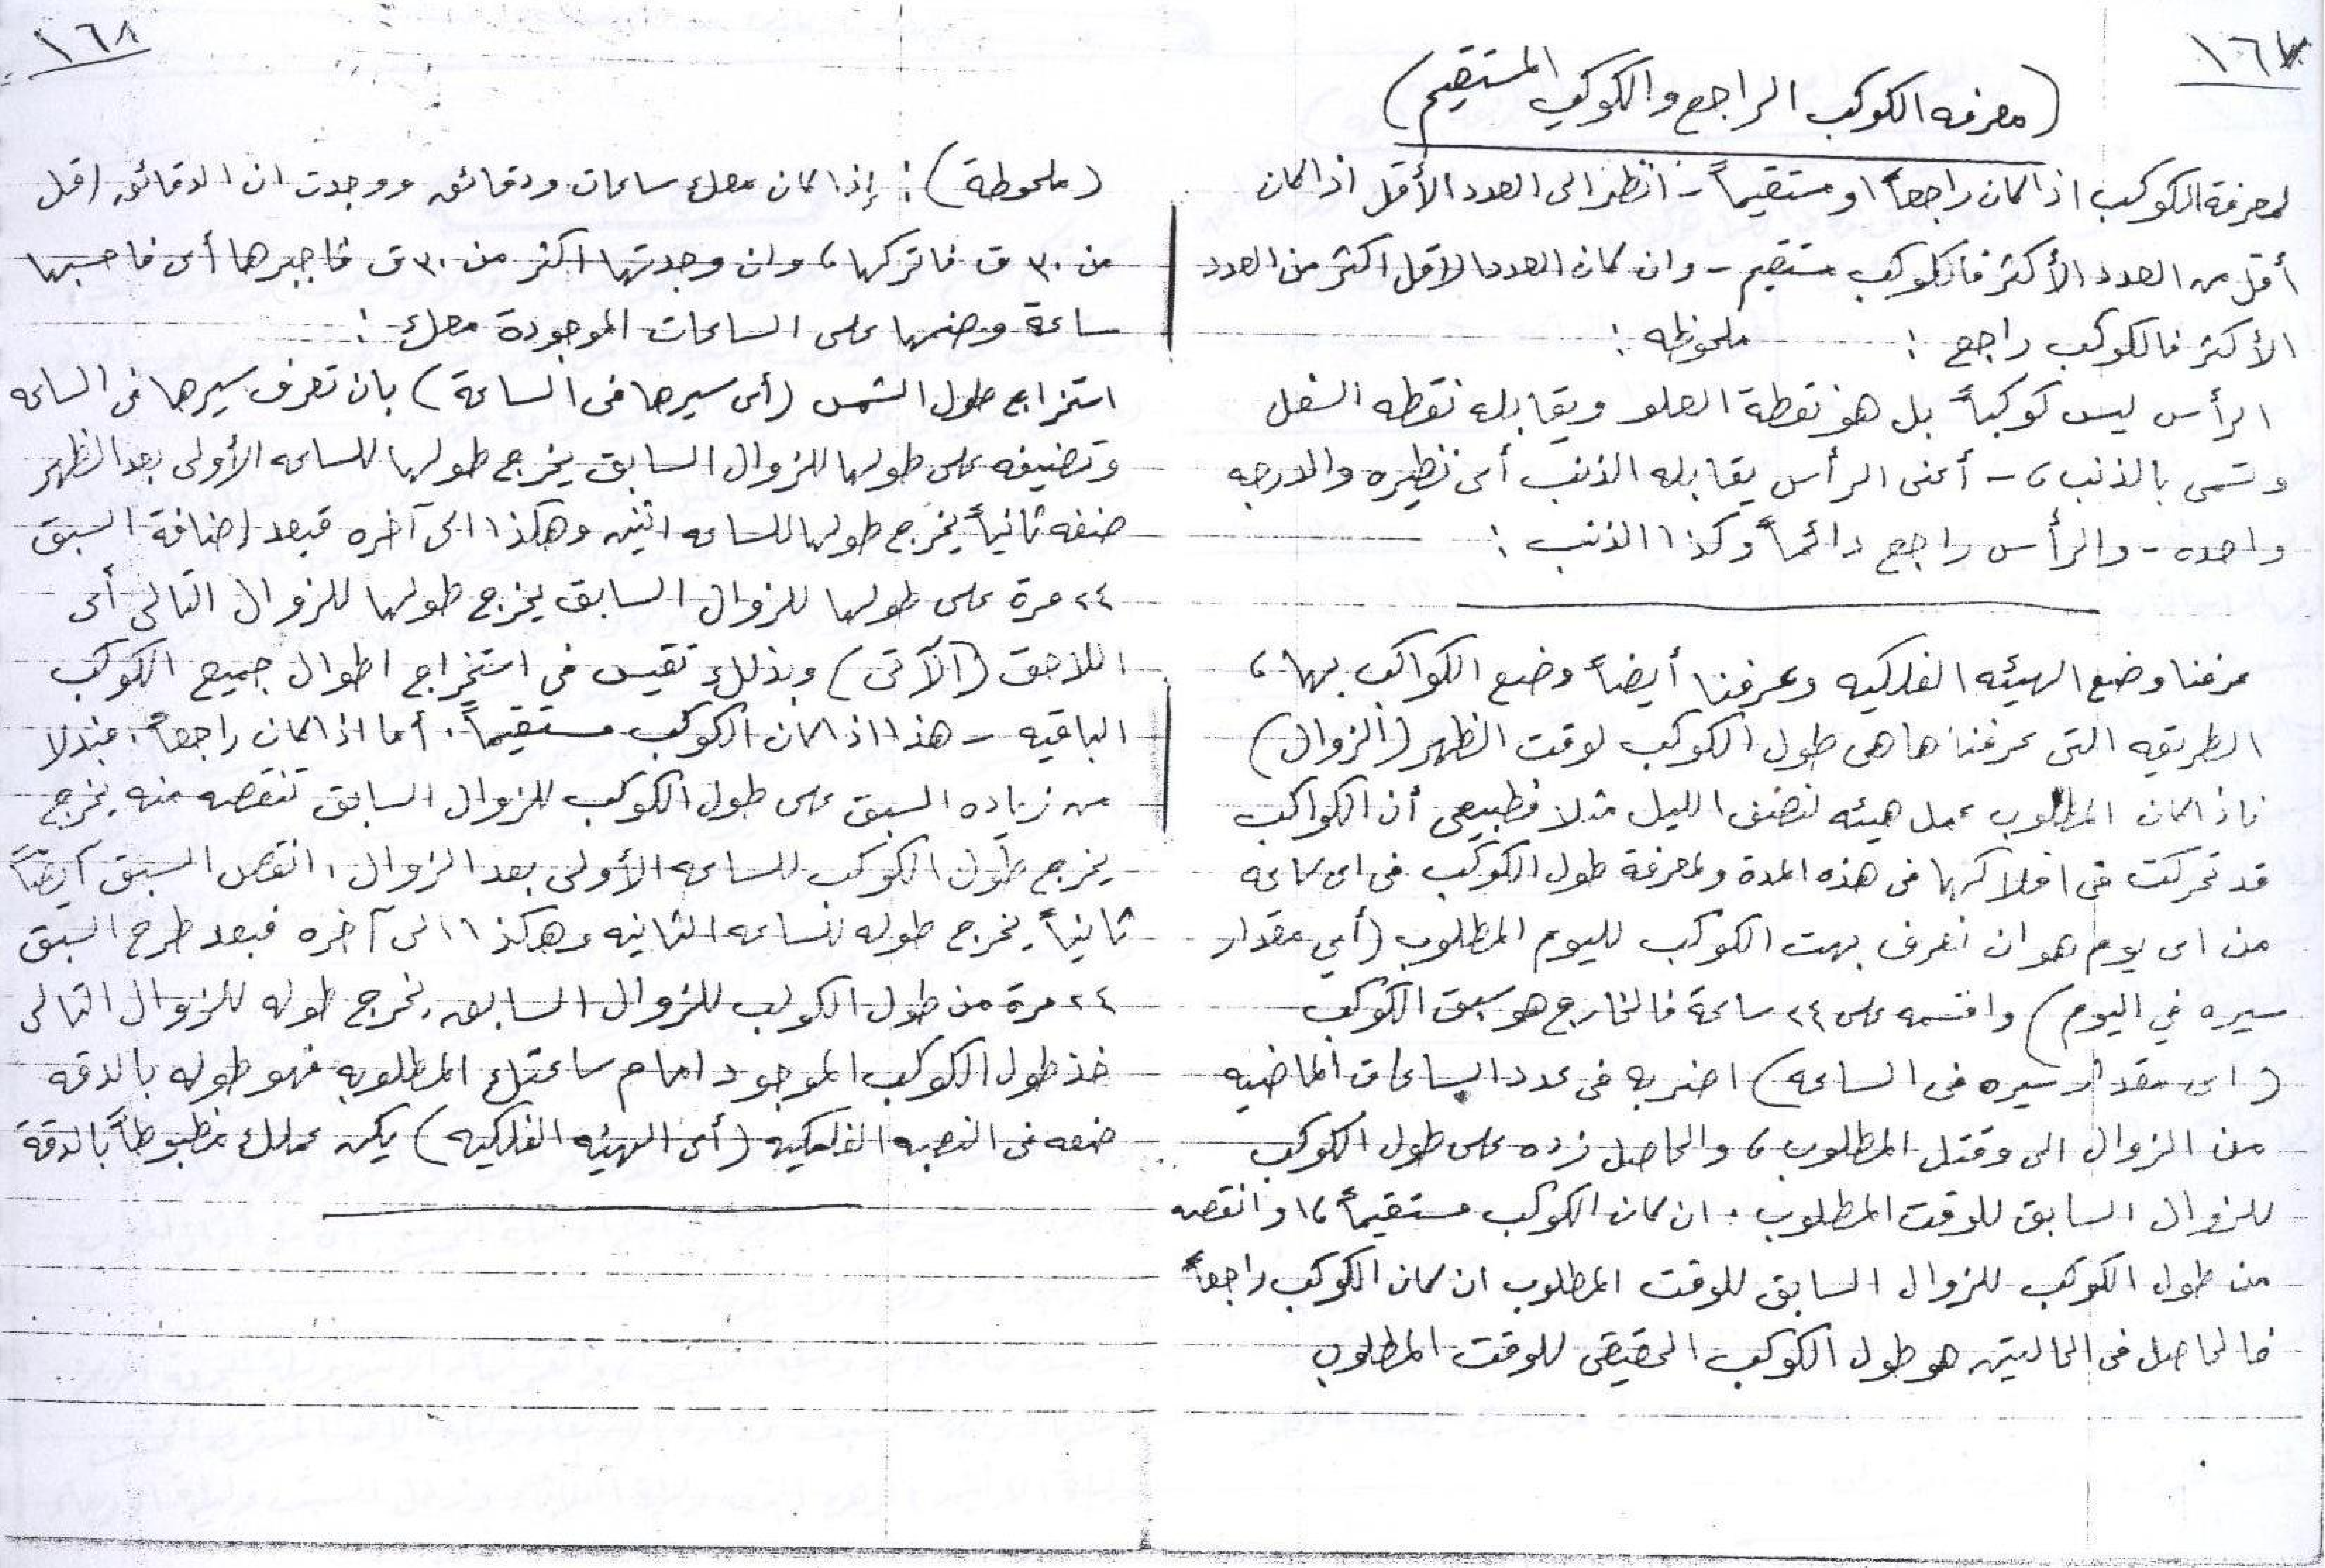 ١٦٧
(معرفه الكوكب الراجع والكوكب المستقيم)
لمعرفة الكوكب اذا كان راجعاً او مستقيماً - انظر الى العدد الأقل اذا كان
أقل من العدد الأكثر فالكوكب مستقيم - وان كان العدد الاقل اكثر من العدد
الأكثر فالكوكب راجع : ملحوظه :
الرأس ليس كوكباً بل هو نقطة العلو ويقابله نقطه السفل
وتسمى بالذنب ، - أعنى الرأس يقابله الذنب أى نظيره والدرجه
واحده - والرأس راجع دائماً وكذا الذنب :
عرفنا وضع الهيئه الفلكيه وعرفنا أيضاً وضع الكواكب بها ،
الطريقه التى عرفناها هى طول الكوكب لوقت الظهر (الزوال)
فاذا كان المطلوب عمل هيئه نصف الليل مثلا فطبيعى أن الكواكب
قد تحركت فى افلاكها فى هذه المدة ولمعرفة طول الكوكب فى اى ساعه
من اى يوم هو ان تعرف بهت الكوكب لليوم المطلوب (أي مقدار
سيره في اليوم) واقسمه على ٢٤ ساعة فالخارج هو سبق الكوكب
(اى مقدار سيره فى الساعه) اضربه فى عدد الساعات الماضيه
من الزوال الى وقتك المطلوب ، والحاصل زده على طول الكوكب
للزوال السابق للوقت المطلوب . ان كان الكوكب مستقيماً ، وانقصه
من طول الكوكب للزوال السابق للوقت المطلوب ان كان الكوكب راجعاً
فالحاصل فى الحالتين هو طول الكوكب الحقيقى للوقت المطلوب
١٦٨
(ملحوظة) : إذا كان معك ساعات ودقائق ووجدت ان الدقائق اقل
من ٣٠ ق فاتركها ، وان وجدتها اكثر من ٣٠ ق فاجبرها أى فاحسبها
ساعة وضمها على الساعات الموجودة معك :
استخراج طول الشمس (أى سيرها فى الساعة) بان تعرف سيرها فى الساعه
وتضيفه على طولها للزوال السابق يخرج طولها للساعه الأولى بعد الظهر
ضفه ثانياً يخرج طولها للساعه اثنين وهكذا الى آخره فبعد إضافة السبق
٢٤ مرة على طولها للزوال السابق يخرج طولها للزوال التالى أى
اللاحق (الآتى) وبذلك تقيس فى استخراج اطوال جميع الكوكب
الباقيه - هذا اذا كان الكوكب مستقيماً . أما اذا كان راجعاً . فبدلا
من زياده السبق على طول الكوكب للزوال السابق تنقصه منه يخرج
يخرج طول الكوكب للساعه الأولى بعد الزوال ، انقص السبق أيضاً
ثانياً يخرج طوله للساعه الثانيه وهكذا الى آخره فبعد طرح السبق
٢٤ مرة من طول الكوكب للزوال السابق يخرج طوله للزوال التالى
خذ طول الكوكب الموجود امام ساعتك المطلوبه فهو طوله بالدقه
ضعه فى النصبه الفلكيه (أى الهيئه الفلكيه) يكن عملك مظبوطاً بالدقة